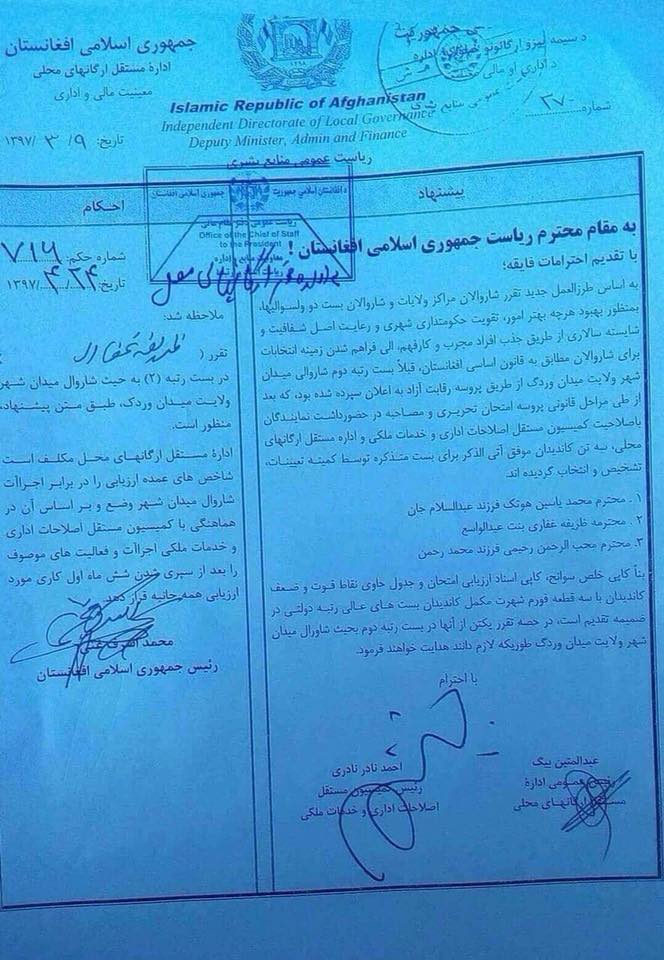 جمهوری اسلامی افغانستان
ادارهٔ مستقل ارگانهای محلی
معینیت مالی و اداری
تاریخ: ۹ / ۳ / ۱۳۹۷
Islamic Republic of Afghanistan
Independent Directorate of Local Governance
Deputy Minister, Admin and Finance
ریاست عمومی منابع بشری
شماره ۳۷۰
پیشنهاد
به مقام محترم ریاست جمهوری اسلامی افغانستان !
با تقدیم احترامات فایقه؛
به اساس طرزالعمل جدید تقرر شاروالان مراکز ولایات و شاروالان بست دو ولسوالیها،
بمنظور بهبود هرچه بهتر امور، تقویت حکومتداری شهری و رعایت اصل شفافیت و
شایسته سالاری از طریق جذب افراد مجرب و کارفهم، الی فراهم شدن زمینه انتخابات
برای شاروالان مطابق به قانون اساسی افغانستان، قبلاً بست رتبه دوم شاروالی میدان
شهر ولایت میدان وردگ از طریق پروسه رقابت آزاد به اعلان سپرده شده بود، که بعد
از طی مراحل قانونی پروسه امتحان تحریری و مصاحبه در حضورداشت نمایندگان
باصلاحیت کمیسیون مستقل اصلاحات اداری و خدمات ملکی و اداره مستقل ارگانهای
محلی، سه تن کاندیدان موفق آتی الذکر برای بست متذکره توسط کمیته تعیینات،
تشخیص و انتخاب گردیده اند.
۱ . محترم محمد یاسین هوتک فرزند عبدالسلام جان
۲ . محترمه ظریفه غفاری بنت عبدالواسع
۳ . محترم محب الرحمن رحیمی فرزند محمد رحمن
بناً کاپی خلص سوانح، کاپی اسناد ارزیابی امتحان و جدول حاوی نقاط قوت و ضعف
کاندیدان با سه قطعه فورم شهرت مکمل کاندیدان بست های عالی رتبه دولتی در
ضمیمه تقدیم است، در حصه تقرر یکتن از آنها در بست رتبه دوم بحیث شاروال میدان
شهر ولایت میدان وردگ طوریکه لازم دانند هدایت خواهند فرمود.
با احترام
عبدالمتین بیگ
رئیس عمومی ادارهٔ
مستقل ارگانهای محلی
احمد نادر نادری
رئیس کمیسیون مستقل
اصلاحات اداری و خدمات ملکی
د افغانستان اسلامي جمهوریت
جمهوری اسلامی افغانستان
Office of the Chief of Staff
to the President
احکام
شماره حکم: ۷۱۶
تاریخ: ۲۴ / ۴ / ۱۳۹۷
ملاحظه شد:
تقرر (
در بست رتبه (۲) به حیث شاروال میدان شهر
ولایت میدان وردک، طبق متن پیشنهاد،
منظور است.
ادارهٔ مستقل ارگانهای محل مکلف است
شاخص های عمده ارزیابی را در برابر اجراآت
شاروال میدان شهر وضع و بر اساس آن در
هماهنگی با کمیسیون مستقل اصلاحات اداری
و خدمات ملکی اجراآت و فعالیت های موصوف
را بعد از سپری شدن شش ماه اول کاری مورد
ارزیابی همه جانبه قرار دهد.
محمد اشرف غنی
رئیس جمهوری اسلامی افغانستان